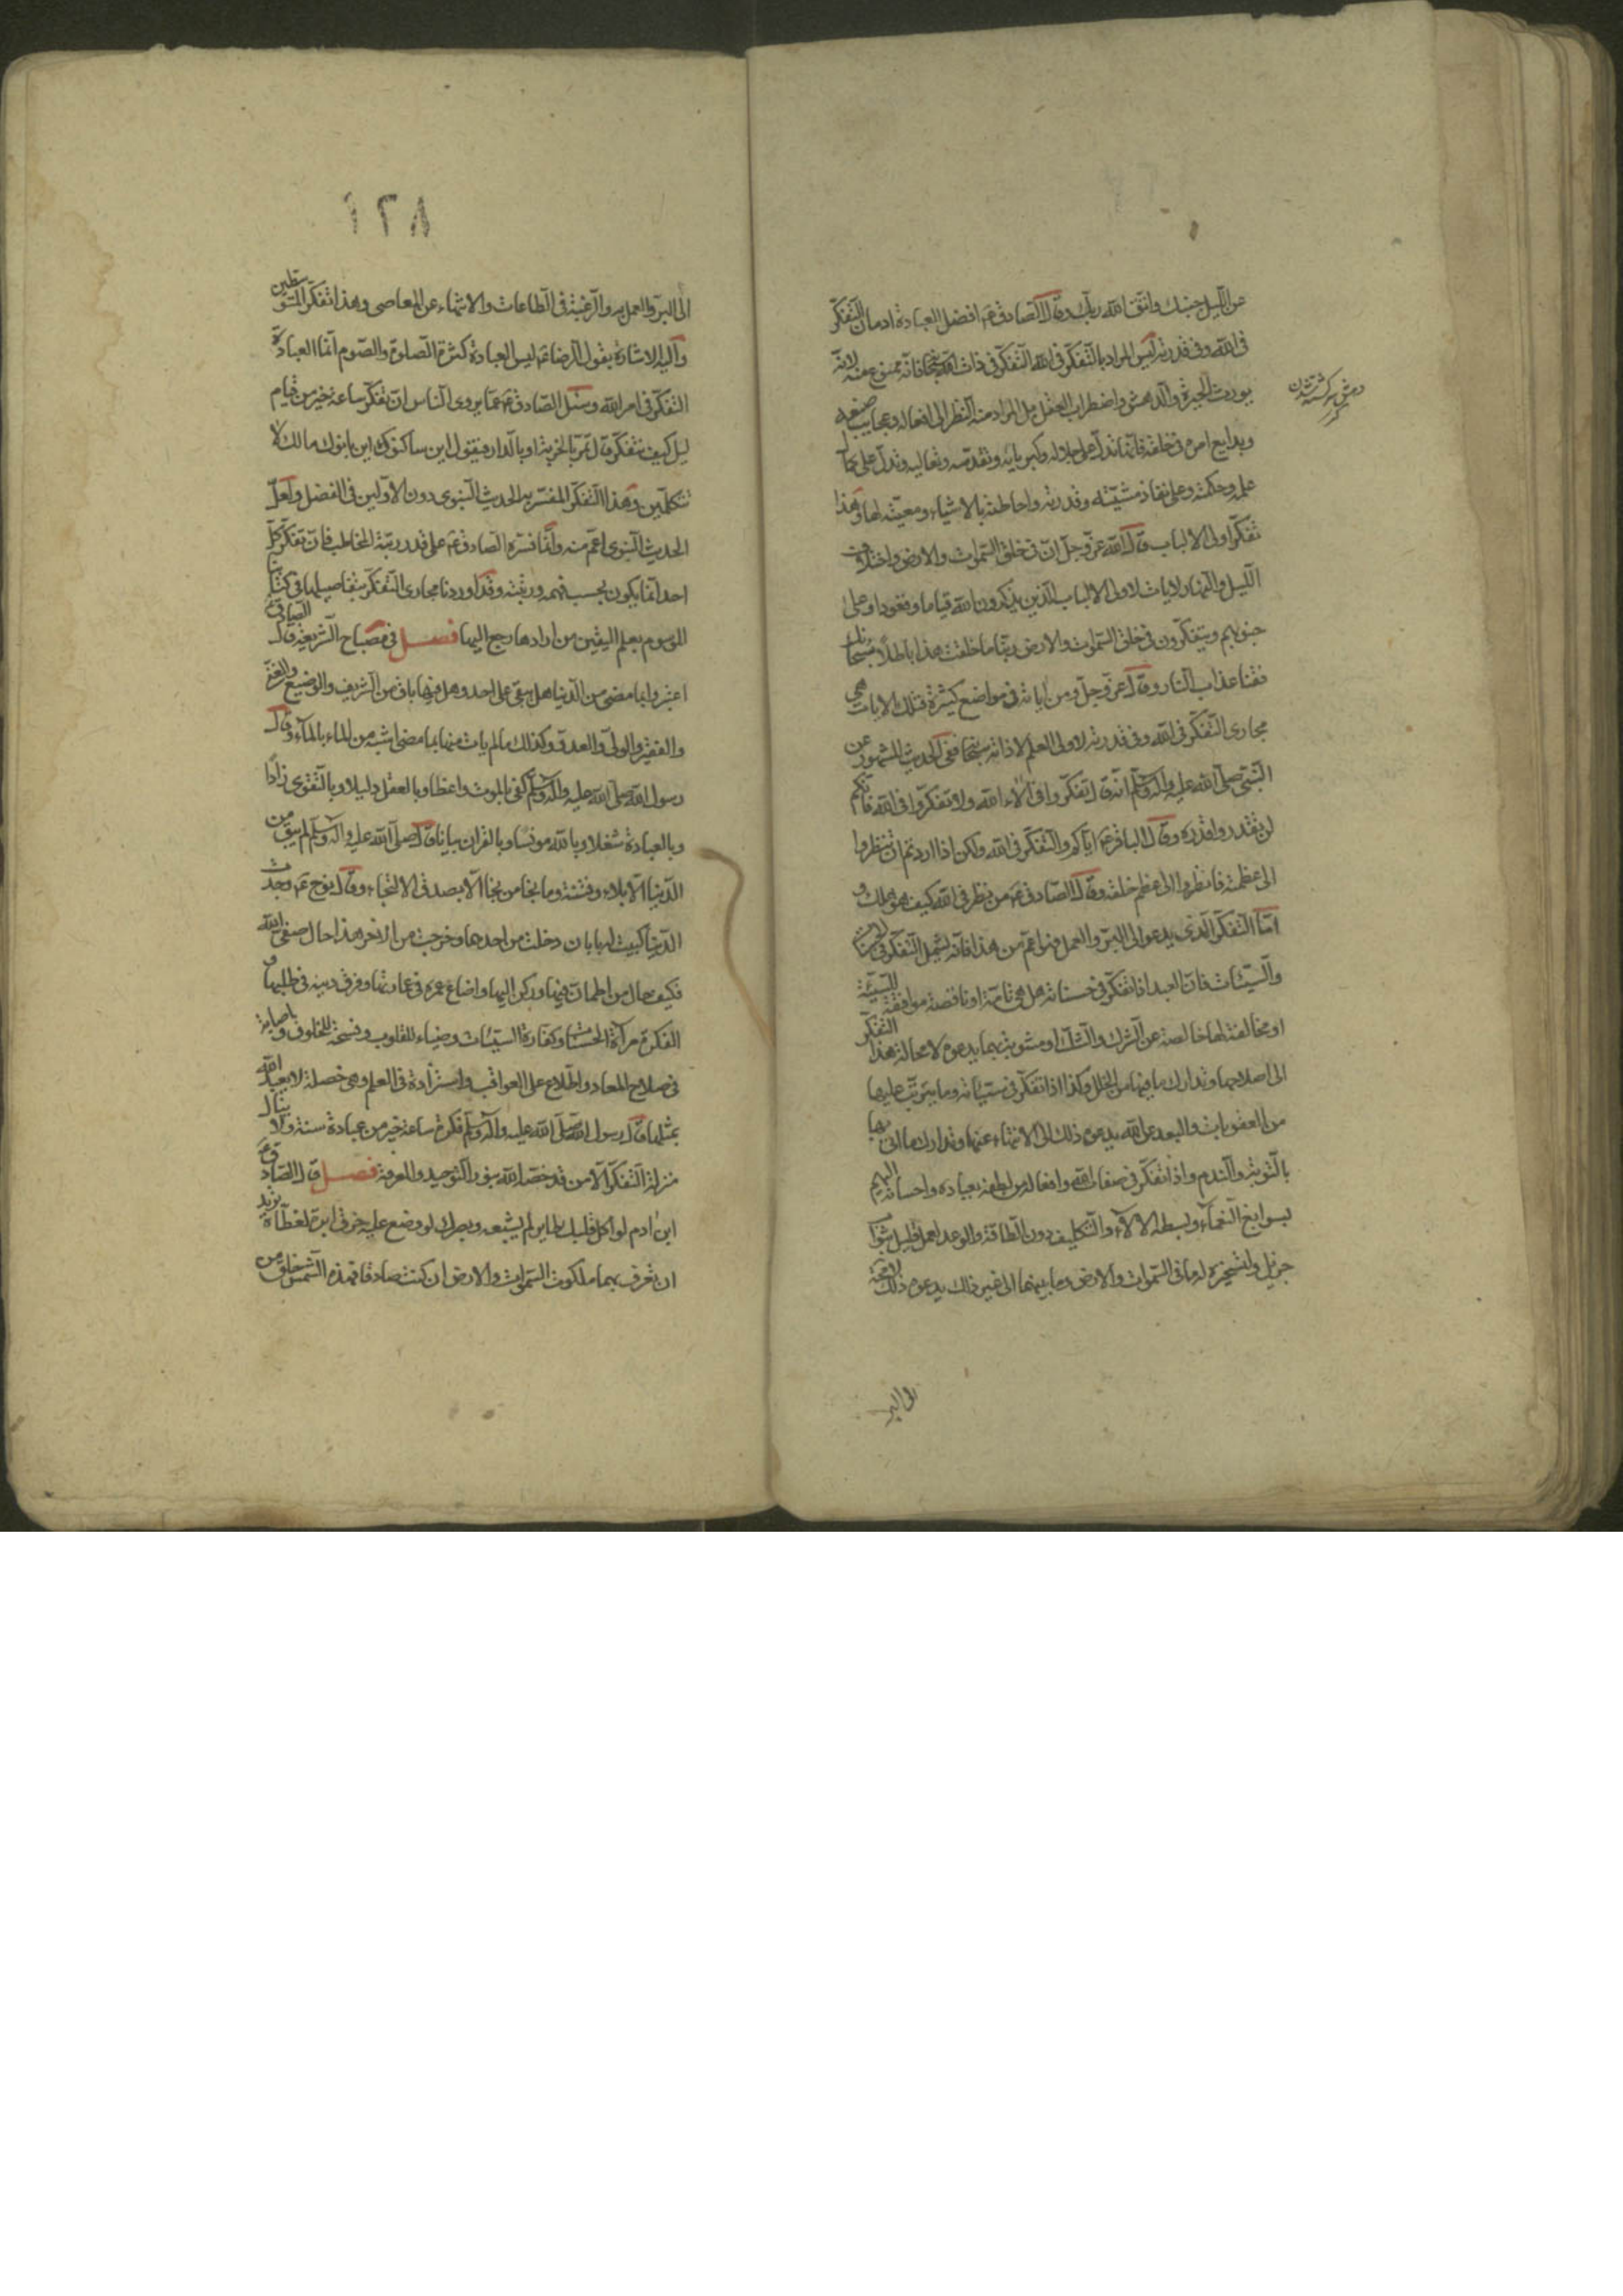 عن الليل جنبك واتق الله ربك وقال الصادق ع افضل العبادة ادمان التفكر
فى الله وفى قدرته ليس المراد بالتفكر فى الله التفكر فى ذات الله سبحانه فانه ممنوع عنه لانه
يورث الحيرة والدهش واضطراب العقل بل المراد منه النظر الى افعاله وعجايب صنعه
وبدايع امره فى خلقه فانها تدل على جلاله وكبريائه وتقدسه وتعاليه وتدل على كمال
علمه وحكمته وعلى نفاذ مشيته وقدرته واحاطته بالاشياء ومعيته لها وهذا
تفكر اولى الالباب قال الله عز وجل ان فى خلق السموات والارض واختلاف
الليل والنهار لايات لاولى الالباب الذين يذكرون الله قياما وقعودا وعلى
جنوبهم ويتفكرون فى خلق السموات والارض ربنا ما خلقت هذا باطلا سبحانك
فقنا عذاب النار وقال عز وجل ومن اياته فى مواضع كثيرة فتلك الايات هى
مجارى التفكر فى الله وفى قدرته لاولى العلم لا ذاته سبحانه ففى الحديث المشهور عن
النبى صلى الله عليه واله وسلم انه قال تفكروا فى الاء الله ولا تفكروا فى الله فانكم
لن تقدروا قدره وقال الباقر ع اياكم والتفكر فى الله ولكن اذا اردتم ان تنظروا
الى عظمته فانظروا الى عظم خلقه وقال الصادق ع من نظر فى الله كيف هو هلك و
اما التفكر الذى يدعو الى البر والعمل فهو اعم من هذا فانه يشمل التفكر فى الحسنات
والسيئات فان العبد اذا تفكر فى حسناته هل هى تامة او ناقصة موافقة للسنة
او مخالفة لها خالصة عن الشرك والشك او مشوبة بهما يدعوه لا محالة هذا التفكر
الى اصلاحها وتدارك ما فيها من الخلل وكذا اذا تفكر فى سيئاته وما يترتب عليها
من العقوبات والبعد عن الله يدعوه ذلك الى الانتهاء عنها وتداركها
بالتوبة والندم واذا تفكر فى صفات الله وافعاله من لطفه بعباده واحسانه اليهم
بسوابغ النعماء وبسطه الالاء والتكليف دون الطاقة والوعد لعمل قليل بثواب
جزيل وتسخيره له ما فى السموات والارض وما بينهما الى غير ذلك يدعوه ذلك لا محالة
الى البر
١٢٨
الى البر والعمل به والرغبة فى الطاعات والانتهاء عن المعاصى وهذا تفكر المتوسطين
واليه الاشارة بقول الرضا ع ليس العبادة كثرة الصلوة والصوم انما العبادة
التفكر فى امر الله وسئل الصادق ع عما يروى الناس ان تفكر ساعة خير من قيام
ليل كيف يتفكر قال تمر بالخربة او بالدار فيقول اين ساكنوك اين بانوك مالك لا
تتكلمين وهذا التفكر المفسر به الحديث النبوى دون الاولين فى الفضل ولعل
الحديث النبوى اعم منه وانما فسره الصادق ع على قدر رتبة المخاطب فان تفكر كل
احد انما يكون بحسب فهمه ورتبته وقد اوردنا مجارى التفكر بتفاصيلها فى كتابنا
الموسوم بعلم اليقين من ارادها رجع اليها فصل فى مصباح الشريعة قال الصادق ع
اعتبروا بما مضى من الدنيا هل بقى على احد وهل فيها باق من الشريف والوضيع والغنى
والفقير والولى والعدو وكذلك ما لم يات منها بما مضى اشبه من الماء بالماء وقال
رسول الله صلى الله عليه واله وسلم كفى بالموت واعظا وبالعقل دليلا وبالتقوى زادا
وبالعبادة شغلا وبالله مونسا وبالقران بيانا قال صلى الله عليه واله وسلم لم يبق من
الدنيا الا بلاء وفتنة وما نجا من نجا الا بصدق الالتجاء وقال نوح ع وجدت
الدنيا كبيت له بابان دخلت من احدهما وخرجت من الاخر هذا حال صفى الله
فكيف حال من اطمان فيها وركن اليها واضاع عمره فى عمارتها وفرق دينه فى طلبها و
الفكرة مرآة الحسنات وكفارة السيئات وضياء للقلوب وفسحة للخلق واصابة
فى صلاح المعاد واطلاع على العواقب واستزادة فى العلم وهى خصلة لا يعبد الله
بمثلها قال رسول الله صلى الله عليه واله وسلم فكرة ساعة خير من عبادة سنة ولا ينال
منزلة التفكر الا من قد خصه الله بنور التوحيد والمعرفة فصل قال الصادق ع
ابن ادم لو اكل قلبك طاير لم يشبعه وبصرك لو وضع عليه خرق ابرة لغطاه تريد
ان تعرف بهما ملكوت السموات والارض ان كنت صادقا فهذه الشمس خلق من